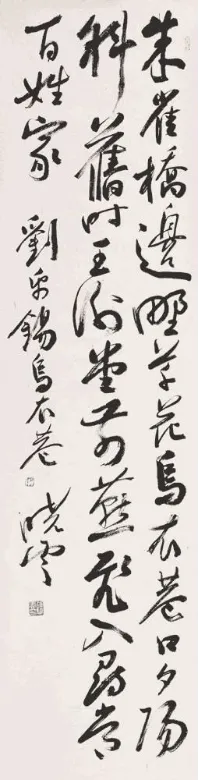 朱雀橋邊野草花烏衣巷口夕陽
斜舊时王謝堂前燕飛入尋常
百姓家 劉禹錫烏衣巷 晓雲